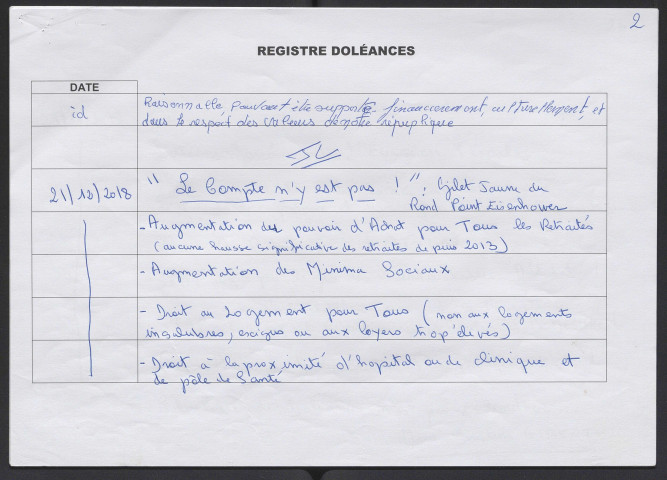 2
REGISTRE DOLÉANCES
DATE
id
Raisonnable pouvant être supporté financièrement, culturellement, et
dans le respect des valeurs de notre république
21/12/2018
" Le Compte n'y est pas ! " : Gilet Jaune du
Rond Point Eisenhower
- Augmentation du pouvoir d'Achat pour Tous les Retraités
(aucune hausse significative des retraites depuis 2013)
- Augmentation des Minima Sociaux
- Droit au Logement pour Tous (non aux logements
insalubres, exigus ou aux loyers trop élevés)
- Droit à la proximité d'hopital ou de clinique et
de pôle de Santé